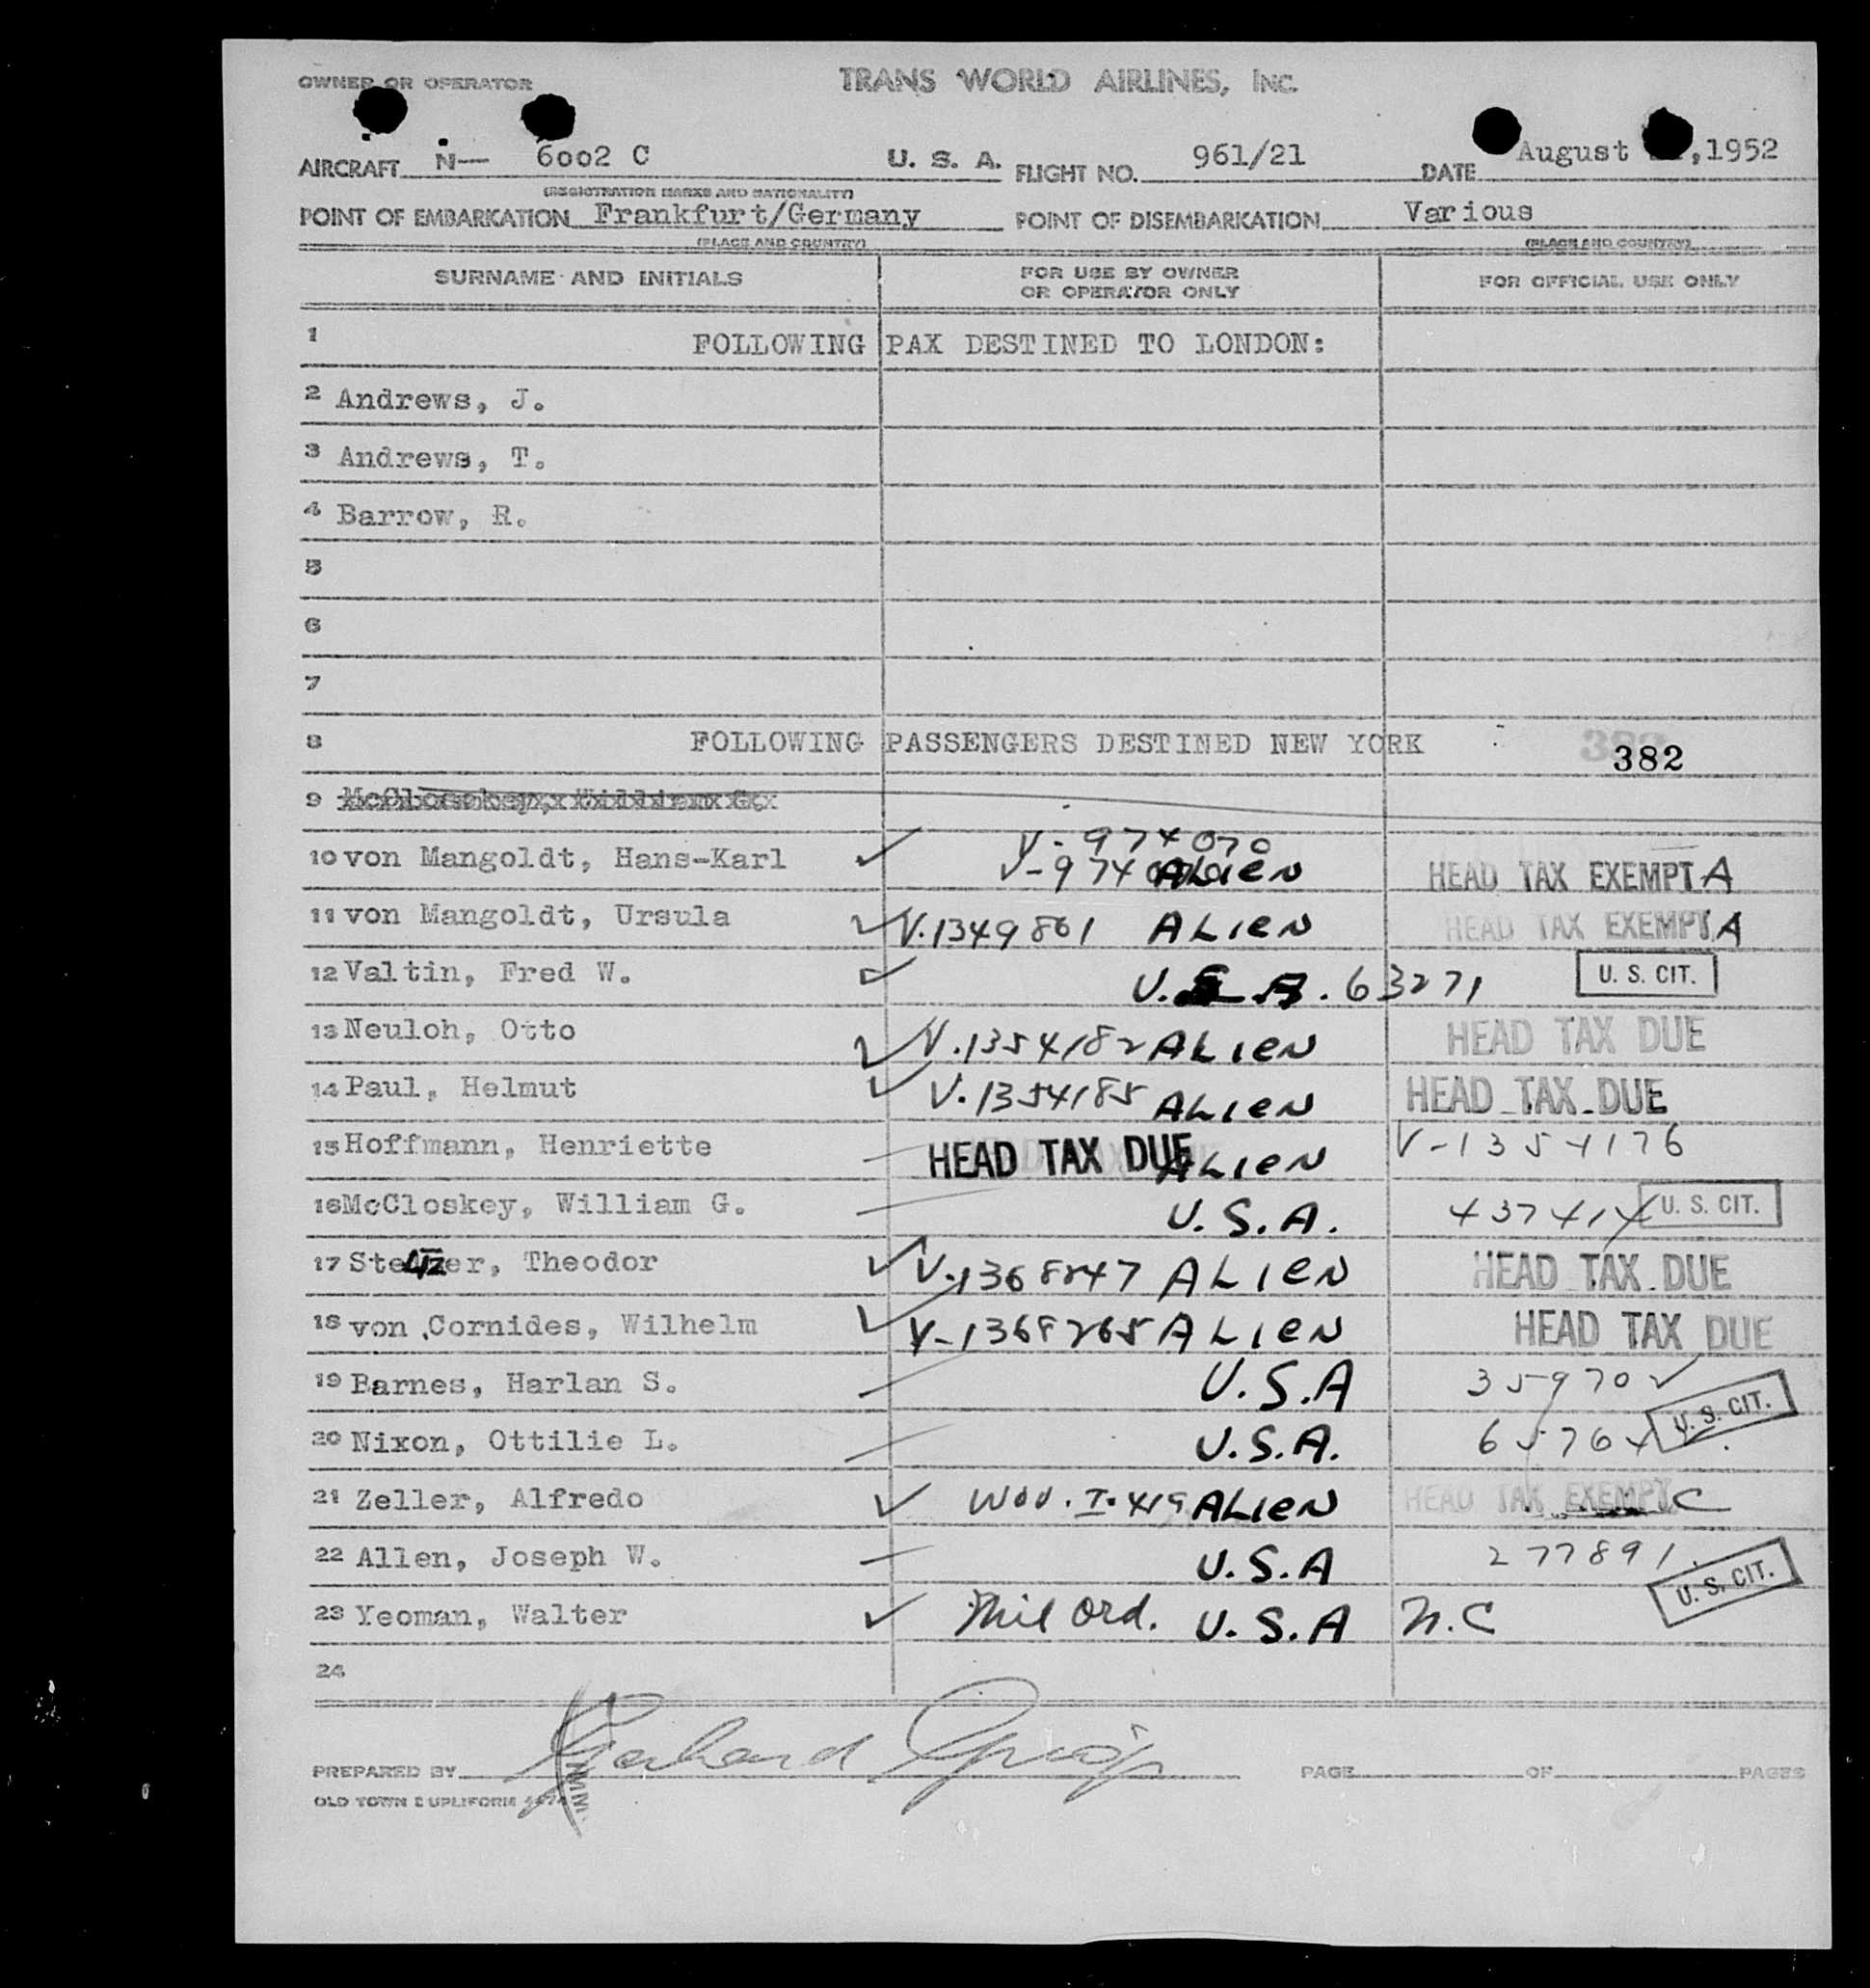 OWNER OR OPERATOR TRANS WORLD AIRLINES, INC.
AIRCRAFT N— 6002 C U. S. A. FLIGHT NO. 961/21 DATE August ,1952
(REGISTRATION MARKS AND NATIONALITY)
POINT OF EMBARKATION Frankfurt/Germany POINT OF DISEMBARKATION Various
(PLACE AND COUNTRY) (PLACE AND COUNTRY)
SURNAME AND INITIALS FOR USE BY OWNER OR OPERATOR ONLY FOR OFFICIAL USE ONLY
1 FOLLOWING PAX DESTINED TO LONDON:
2 Andrews, J.
3 Andrews, T.
4 Barrow, R.
5
6
7
8 FOLLOWING PASSENGERS DESTINED NEW YORK 382
9 McCloskey, William G.
V-974070
10 von Mangoldt, Hans-Karl V-974070 ALIEN HEAD TAX EXEMPT A
11 von Mangoldt, Ursula V.1349861 ALIEN HEAD TAX EXEMPT A
12 Valtin, Fred W. U.S.A. 63271 U. S. CIT.
13 Neuloh, Otto V.1354182 ALIEN HEAD TAX DUE
14 Paul, Helmut V.1354185 ALIEN HEAD TAX DUE
15 Hoffmann, Henriette HEAD TAX DUE ALIEN V-1354176
16 McCloskey, William G. U.S.A. 437414 U. S. CIT.
17 Steltzer, Theodor V.1368247 ALIEN HEAD TAX DUE
18 von Cornides, Wilhelm V-1368265 ALIEN HEAD TAX DUE
19 Barnes, Harlan S. U.S.A 35970
20 Nixon, Ottilie L. U.S.A. 65764 U. S. CIT.
21 Zeller, Alfredo I-419 ALIEN HEAD TAX EXEMPT C
22 Allen, Joseph W. U.S.A 277891
23 Yeoman, Walter Mil Ord. U.S.A N.C U. S. CIT.
24
PREPARED BY Gerhard PAGE OF PAGES
OLD TOWN DUPLIFORM